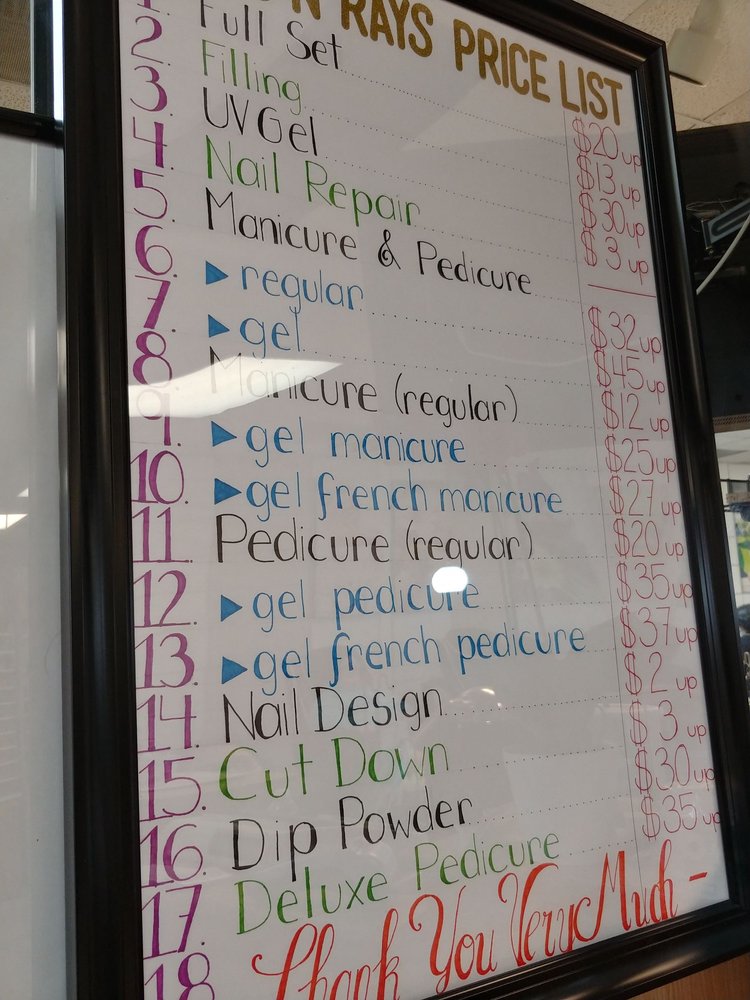 N RAYS PRICE LIST
1. Full Set $20 up
2. Filling $13 up
3. UV Gel $30 up
4. Nail Repair $3 up
5. Manicure & Pedicure
6. ▶ regular $32 up
7. ▶ gel $45 up
8. Manicure (regular) $12 up
9. ▶ gel manicure $25 up
10. ▶ gel french manicure $27 up
11. Pedicure (regular) $20 up
12. ▶ gel pedicure $35 up
13. ▶ gel french pedicure $37 up
14. Nail Design $2 up
15. Cut Down $3 up
16. Dip Powder $30 up
17. Deluxe Pedicure $35 up
18. Thank You Very Much -